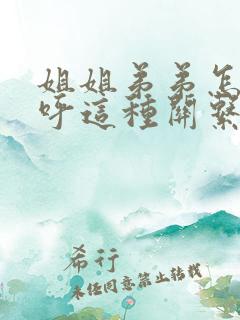 姐姐弟弟怎
呼這種關繫
希行
未經同意禁止轉載